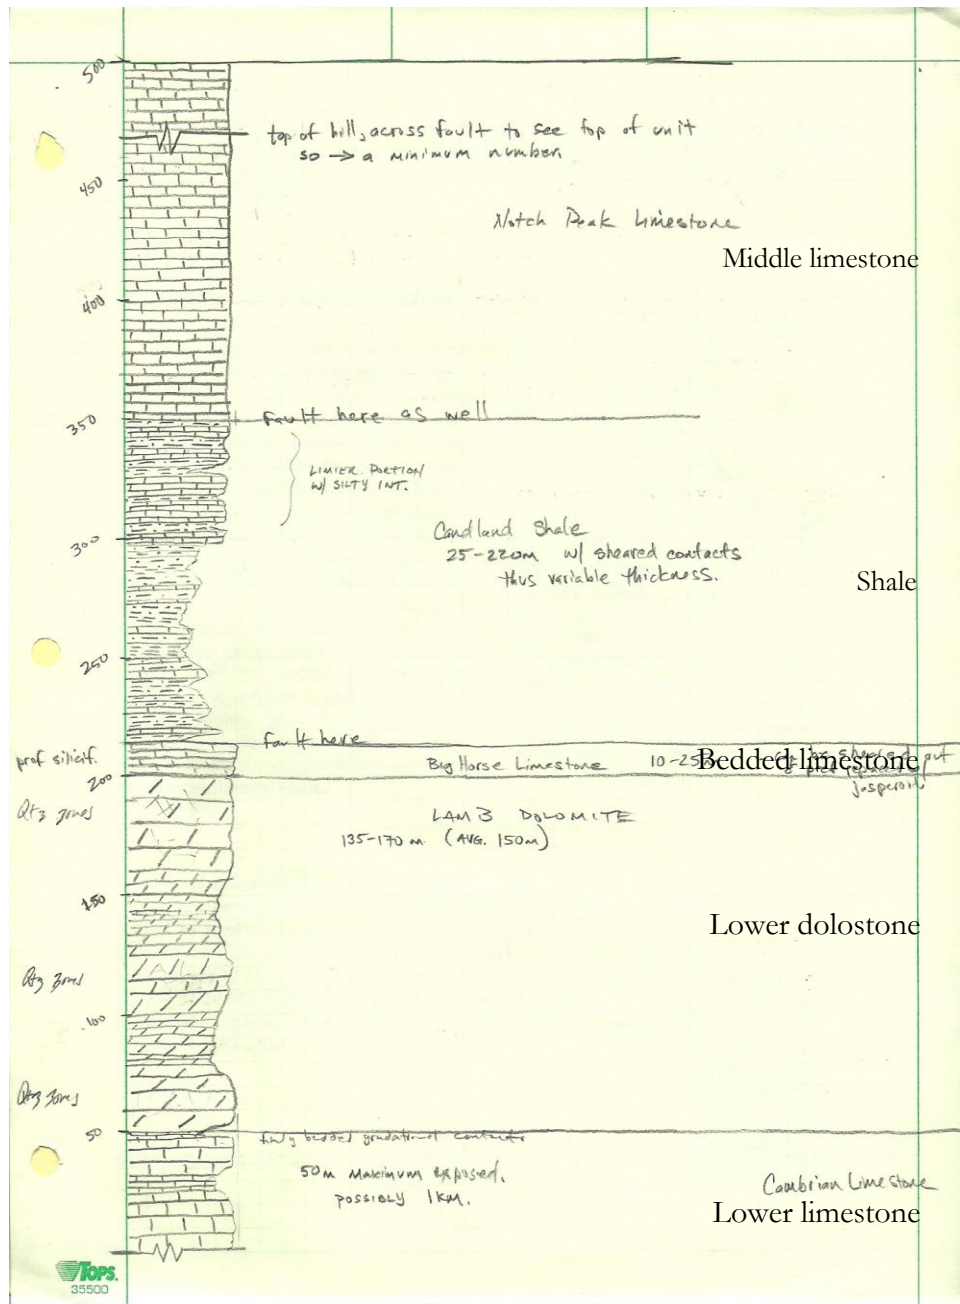 500
top of hill, across fault to see top of unit
so → a minimum number.
450
Notch Peak Limestone
Middle limestone
400
350
fault here as well
LIMIER PORTION
W/ SILTY INT.
300
Candland Shale
25-220m w/ sheared contacts
thus variable thickness.
Shale
250
fault here
prof silicif.
Big Horse Limestone 10-25
Bedded limestone
out
jasperoid
200
Qtz zones
LAMB DOLOMITE
135-170 m (AVG. 150m)
150
Lower dolostone
Qtz zones
100
Qtz zones
50
finly bedded gradational contacts
50m Maximum exposed.
possibly 1km.
Cambrian Limestone
Lower limestone
TOPS.
35500